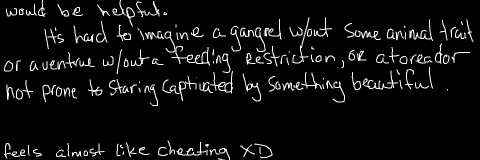 would be helpful.
It's hard to imagine a gangrel w/out some animal trait
or a ventrue w/out a feeding restriction, or a toreador
not prone to staring captivated by something beautiful.
feels almost like cheating XD